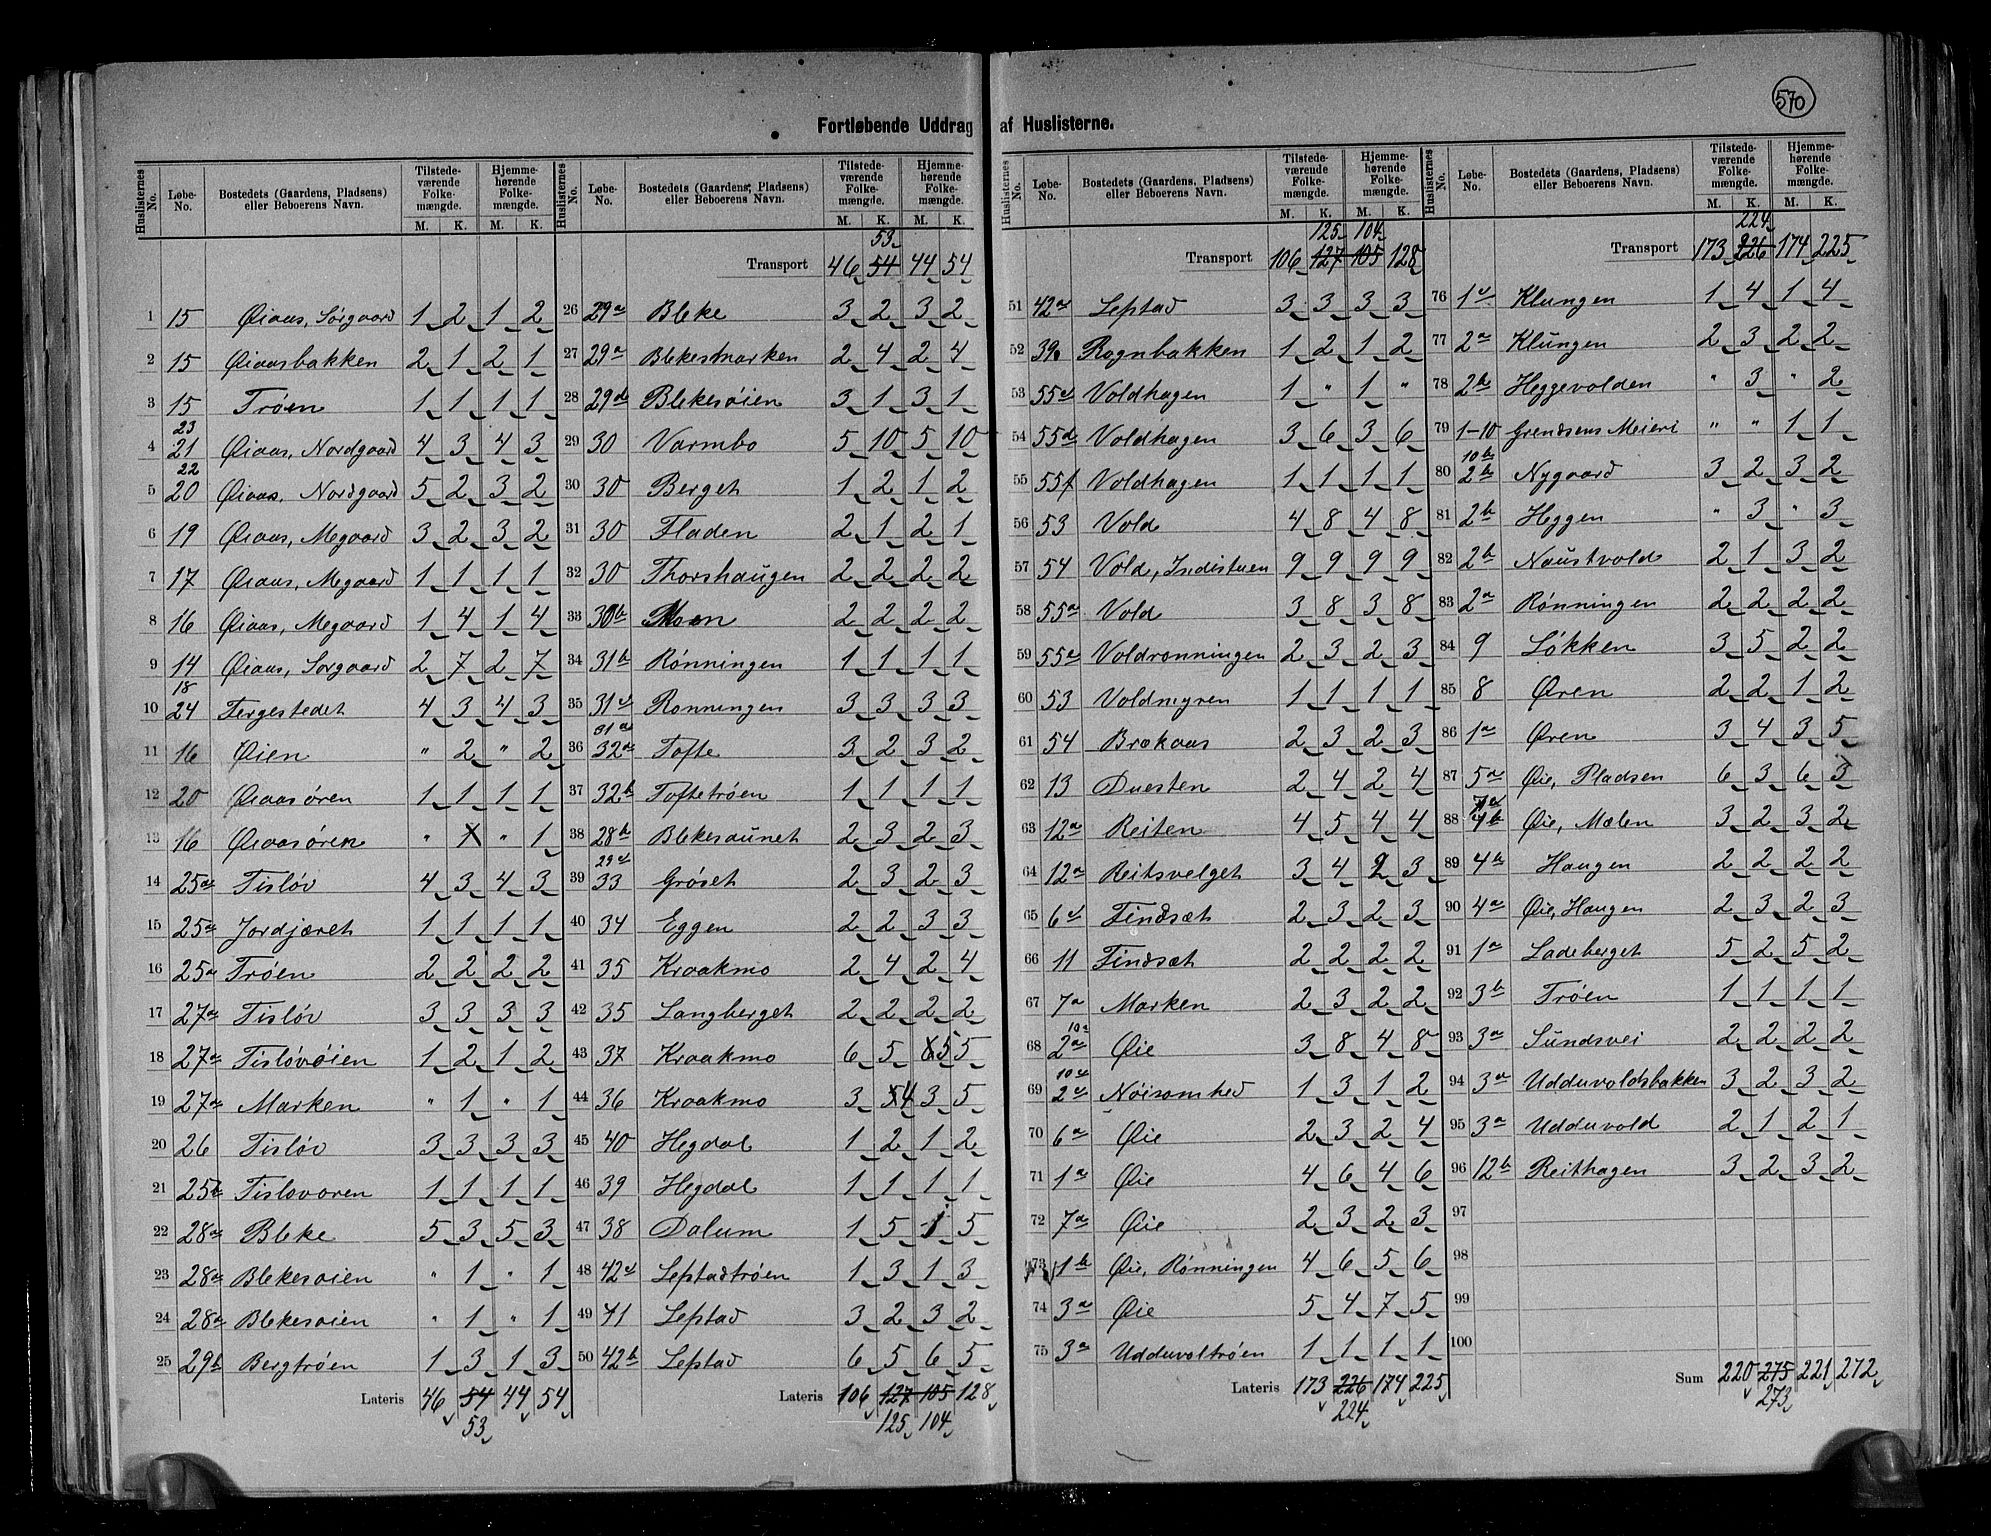 570
Fortløbende Uddrag af Huslisterne.
Huslisternes No. | Løbe-No. | Bostedets (Gaardens, Pladsens) eller Beboerens Navn. | Tilstedeværende Folkemængde. M. K. | Hjemmehørende Folkemængde. M. K.
1 15 Øiaas, Sørgaard 1 2 1 2
2 15 Øiaasbakken 2 1 2 1
3 15 Trøen 1 1 1 1
4 23 21 Øiaas, Nordgaard 4 3 4 3
5 22 20 Øiaas, Nordgaard 5 2 3 2
6 19 Øiaas, Megaard 3 2 3 2
7 17 Øiaas, Megaard 1 1 1 1
8 16 Øiaas, Megaard 1 4 1 4
9 14 Øiaas, Sørgaard 2 7 2 7
10 18 24 Fergestedet 4 3 4 3
11 16 Øien " 2 " 2
12 20 Øiaasøren 1 1 1 1
13 16 Øiaasøren " " 1
14 25a Tisløv 4 3 4 3
15 25a Jordjæret 1 1 1 1
16 25a Trøen 2 2 2 2
17 27a Tisløv 3 3 3 3
18 27a Tisløvøien 1 2 1 2
19 27a Marken " 1 " 1
20 26 Tisløv 3 3 3 3
21 25b Tisløvøren 1 1 1 1
22 28a Bleke 5 3 5 3
23 28a Blekesøien " 1 " 1
24 28a Blekesøien " 1 " 1
25 29b Bergtrøen 1 3 1 3
Lateris 46 54 44 54
53
Huslisternes No. | Løbe-No. | Bostedets (Gaardens, Pladsens) eller Beboerens Navn. | Tilstedeværende Folkemængde. M. K. | Hjemmehørende Folkemængde. M. K.
53
Transport 46 54 44 54
26 29a Bleke 3 2 3 2
27 29a Blekesmarken 2 4 2 4
28 29d Blekesøien 3 1 3 1
29 30 Varmbo 5 10 5 10
30 30 Berget 1 2 1 2
31 30 Fladen 2 1 2 1
32 30 Thorshaugen 2 2 2 2
33 30b Moen 2 2 2 2
34 31b Rønningen 1 1 1 1
35 31c Rønningen 3 3 3 3
36 31a 32a Tofte 3 2 3 2
37 32b Toftetrøen 1 1 1 1
38 28b Blekesaunet 2 3 2 3
39 29c 33 Grøset 2 3 2 3
40 34 Eggen 2 2 3 3
41 35 Kraakmo 2 4 2 4
42 35 Langberget 2 2 2 2
43 37 Kraakmo 6 5 5 5
44 36 Kraakmo 3 4 3 5
45 40 Hegdal 1 2 1 2
46 39 Hegdal 1 1 1 1
47 38 Dalum 1 5 1 5
48 42c Leptadtrøen 1 3 1 3
49 41 Leptad 3 2 3 2
50 42b Leptad 6 5 6 5
Lateris 106 127 105 128
125 104
Huslisternes No. | Løbe-No. | Bostedets (Gaardens, Pladsens) eller Beboerens Navn. | Tilstedeværende Folkemængde. M. K. | Hjemmehørende Folkemængde. M. K.
125 104
Transport 106 127 105 128
51 42a Leptad 3 3 3 3
52 39 Rognbakken 1 2 1 2
53 55c Voldhagen 1 " 1 "
54 55d Voldhagen 3 6 3 6
55 55f Voldhagen 1 1 1 1
56 53 Vold 4 8 4 8
57 54 Vold, Indistuen 9 9 9 9
58 55a Vold 3 8 3 8
59 55e Voldrønningen 2 3 2 3
60 53 Voldmyren 1 1 1 1
61 54 Brækaas 2 3 2 3
62 13 Duesten 2 4 2 4
63 12a Reiten 4 5 4 4
64 12a Reitsvelget 3 4 2 3
65 6c Findsæt 2 3 2 3
66 11 Findsæt 2 2 2 2
67 7a Marken 2 3 2 2
68 10a 2a Øie 3 8 4 8
69 10c 2c Nøisomhed 1 3 1 2
70 6a Øie 2 3 2 4
71 1a Øie 4 6 4 6
72 7a Øie 2 3 2 3
73 1b Øie, Rønningen 4 6 5 6
74 3a Øie 5 4 7 5
75 3a Udduvoltrøen 1 1 1 1
Lateris 173 226 174 225
224
Huslisternes No. | Løbe-No. | Bostedets (Gaardens, Pladsens) eller Beboerens Navn. | Tilstedeværende Folkemængde. M. K. | Hjemmehørende Folkemængde. M. K.
224
Transport 173 226 174 225
76 1c Klungen 1 4 1 4
77 2a Klungen 2 3 2 2
78 2b Heggevolden " 3 " 2
79 1-10 Grendsens Meieri " " 1 1
80 10b 2b Nygaard 3 2 3 2
81 2b Heggen " 3 " 3
82 2b Naustvold 2 1 3 2
83 2a Rønningen 2 2 2 2
84 9 Løkken 3 5 2 2
85 8 Øren 2 2 1 2
86 1a Øren 3 4 3 5
87 5a Øie, Pladsen 6 3 6 3
88 4b Øie, Mælen 3 2 3 2
89 4b Haugen 2 2 2 2
90 4a Øie, Haugen 2 3 2 3
91 1a Ladeberget 5 2 5 2
92 3b Trøen 1 1 1 1
93 3a Sundsvei 2 2 2 2
94 3a Udduvoldsbakken 3 2 3 2
95 3a Udduvold 2 1 2 1
96 12b Reithagen 3 2 3 2
97
98
99
100
Sum 220 275 221 272
273